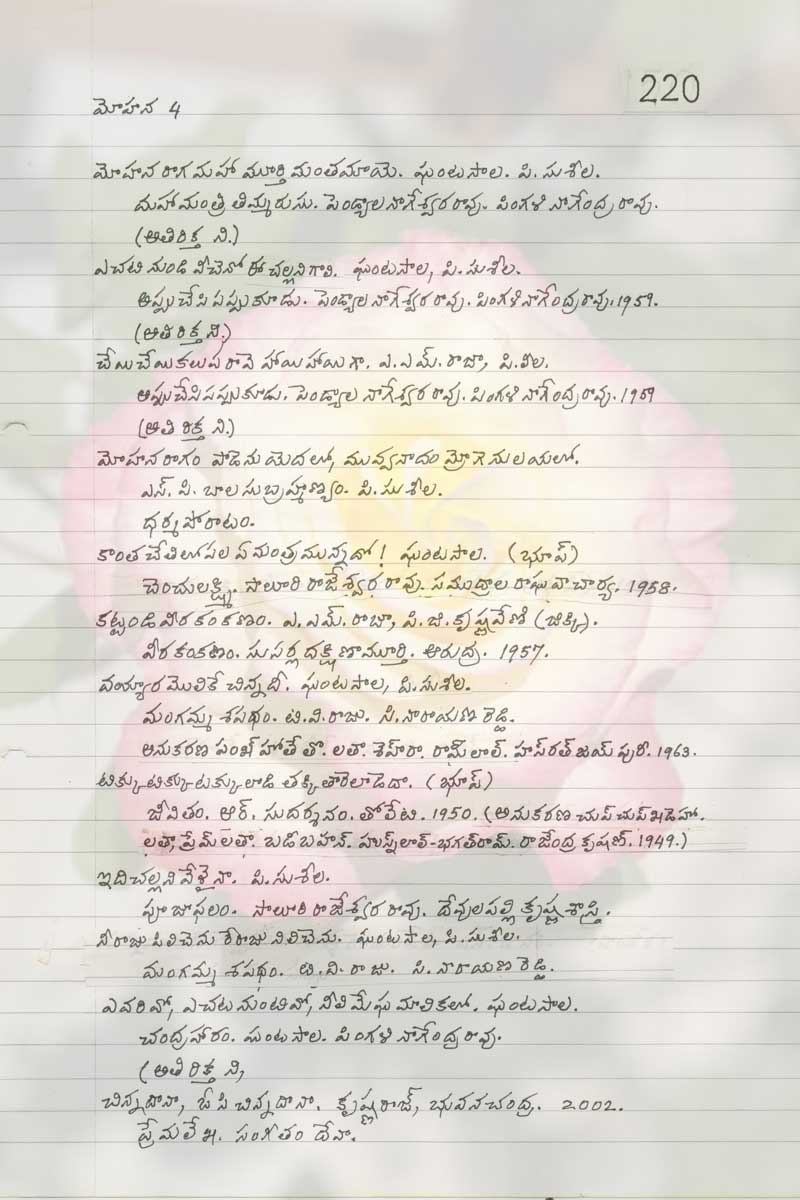 220
మోహన 4
మోహనరాగమహా మూర్తిమంతమాయె. ఘంటసాల. పి. సుశీల.
మహామంత్రి తిమ్మరుసు. పెండ్యాల నాగేశ్వరరావు. పింగళి నాగేంద్రరావు.
(అతిరిక్త ని.)
ఎచటి నుండి వీచెనో ఈ చల్లని గాలి. ఘంటసాల, పి. సుశీల.
అప్పుచేసి పప్పుకూడు. పెండ్యాల నాగేశ్వరరావు. పింగళి నాగేంద్రరావు. 1959.
(అతిరిక్త ని.)
చేయి చేయి కలుపరావె హాయిహాయిగా. ఎ. ఎమ్. రాజా, పి. లీల.
అప్పుచేసి పప్పుకూడు. పెండ్యాల నాగేశ్వరరావు. పింగళి నాగేంద్రరావు. 1959
(అతిరిక్త ని.)
మోహనరాగం పాడెను యెదలో, మువ్వనాదం మ్రోగెను లయలో.
ఎస్. పి. బాలసుబ్రహ్మణ్యం. పి. సుశీల.
ధర్మపోరాటం.
కాంత చేతిలోపల ఏ మంత్రమున్నదో! ఘంటసాల. (భూప్)
చెంచులక్ష్మి. సాలూరి రాజేశ్వరరావు. సముద్రాల రాఘవాచార్య. 1958.
కట్టండి వీర కంకణం. ఎ. ఎమ్. రాజా, పి. జి. కృష్ణవేణి (జిక్కి).
వీర కంకణం. సుసర్ల దక్షిణామూర్తి. ఆరుద్ర. 1957.
వయ్యారమొలికే చిన్నది. ఘంటసాల, పి. సుశీల.
మంగమ్మ శపథం. టి. వి. రాజు. సి. నారాయణ రెడ్డి.
అనుకరణ పంఖ్ హోతే తొ. లతా. శెహ్రా. రామ్‌లాల్. హస్‌రత్ జయ్‌పురీ. 1963.
టిక్కుటిక్కుటక్కులాడి తక్కితారెలాడెదా. (భూప్)
జీవితం. ఆర్. సుదర్శనం. తోలేటి. 1950. (అనుకరణ చుప్ చుప్ ఖడెహో.
లతా, ప్రేమ్‌లతా. బడీబహన్. హుస్న్‌లాల్-భగత్‌రామ్. రాజేంద్ర కృషణ్. 1949.)
ఇది చల్లని వేళైనా. పి. సుశీల.
పూజాఫలం. సాలూరి రాజేశ్వరరావు. దేవులపల్లి కృష్ణశాస్త్రి.
నీ రాజు పిలిచెను రేరాజు నిలిచెను. ఘంటసాల, పి. సుశీల.
మంగమ్మ శపథం. టి. వి. రాజు. సి. నారాయణ రెడ్డి.
ఎవరివో, ఎచటనుంటివో, నీలి మేఘమాలికలో. ఘంటసాల.
చంద్రహారం. ఘంటసాల. పింగళి నాగేంద్రరావు.
(అతిరిక్త ని,
చిన్నదానా, ఓసి చిన్నదానా. కృష్ణరాజ్, భువనచంద్ర. 2002.
ప్రేమలేఖ. సంగీతం దేవా.